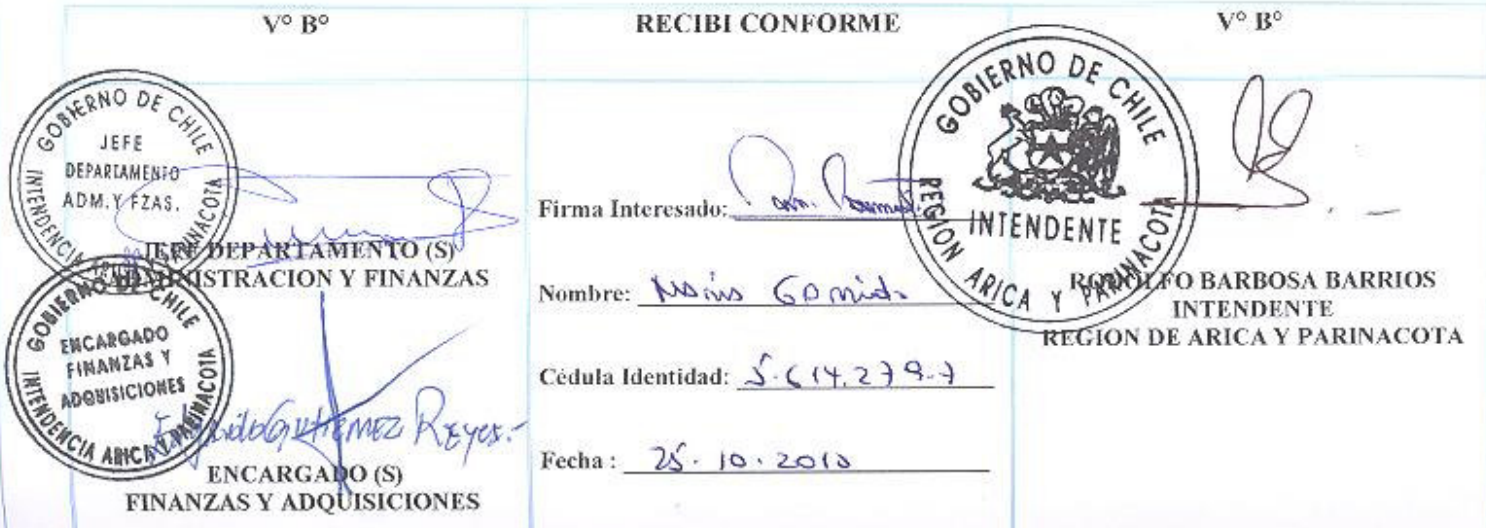 V° B°
RECIBI CONFORME
V° B°
GOBIERNO DE CHILE
JEFE
DEPARTAMENTO
ADM. Y FZAS.
INTENDENCIA ARICA Y PARINACOTA
JEFE DEPARTAMENTO (S)
ADMINISTRACION Y FINANZAS
GOBIERNO DE CHILE
ENCARGADO
FINANZAS Y
ADQUISICIONES
INTENDENCIA ARICA Y PARINACOTA
Gutierrez Reyes.-
ENCARGADO (S)
FINANZAS Y ADQUISICIONES
Firma Interesado:
Nombre:
Cédula Identidad: 5.614.279-7
Fecha : 25.10.2010
GOBIERNO DE CHILE
INTENDENTE
REGION ARICA Y PARINACOTA
RODOLFO BARBOSA BARRIOS
INTENDENTE
REGION DE ARICA Y PARINACOTA